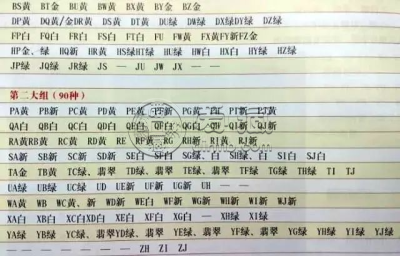 BS黄 BT金 BU黄 BW黄 BX黄 BY金 BZ金
DP黄 DQ黄/金DR黄 DS黄 DT黄 DU绿 DW绿 DX绿DY绿 DZ绿
FP白 FQ白 FR白 FS白 FT白 FU FW黄 FX黄FY新FZ金
HP金、绿 HQ新 HR黄 HS绿HT绿 HU绿 HW白 HX白 HY绿 HZ绿
JP绿 JQ绿 JR绿 JS — JU JW JX — —
第二大组(90种)
PA黄 PB新 PC黄 PD黄 PE黄 PF新 PG黄 PI新 PJ黄
QA白 QB白 QC白 QD黄 QE黄 QF白 QG白 QI新 QJ新
RA黄RB黄 RC黄 RD黄 RE RF黄 RG黄 RH新 RI黄 RJ新
SA新 SB新 SC新 SD新 SE白 SF白 SG绿、白 SH绿、白 SI白 SJ白
TA金 TB黄 TC绿、翡翠 TD绿、翡翠 TE绿、翡翠 TF绿 TG绿 TH绿 TI TJ
UA绿 UB绿 UC绿 UD UE新 UF新 UG新 UH — —
WA黄 WB WC黄、新 WD新 WE新 WF新 WG新 WH新 WI新 WJ新
XA白 XB白 XC白XD白 XE白 XF白 XG白 — XH绿 XI绿
YA绿 YB绿 YC绿、翡翠YD绿、翡翠 YE绿、翡翠 YF绿、翡翠 YG绿 YH绿 YI绿 YJ绿
— — — — — — — ZH ZI ZJ